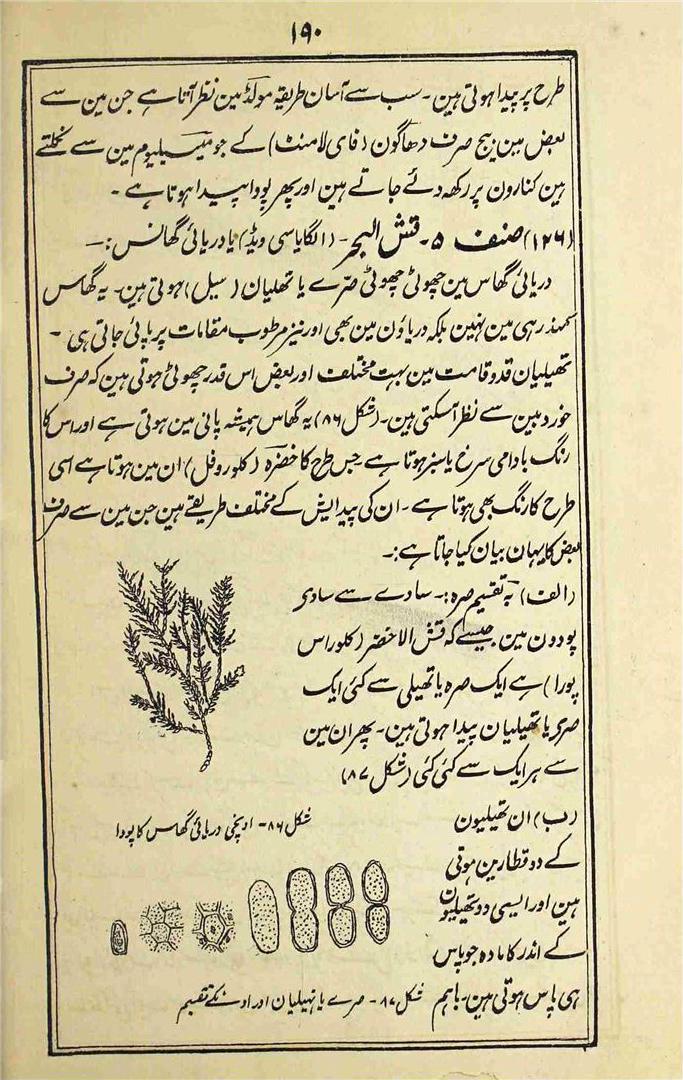 ۱۹۰
طرح پر پیدا ہوتی ہین ۔ سب سے آسان طریقہ مولڈ مین نظر آتا ہے جن مین سے
بعض مین بیج صرف دھاگون (فای لامنٹ) کے جو میسیلیوم مین سے نکلتے
ہین کنارون پر رکھہ دئے جاتے ہین اور پھر پودا پیدا ہوتا ہے ۔
(۱۲۶) صنف ۵ ۔ قش البحر ۔ (الگایاسی ویڈ) یا دریائی گھانس :۔
دریائی گھاس مین چھوٹی چھوٹی صرّے یا تھلیان (سیل) ہوتی ہین ۔ یہ گھاس
سمندر ہی مین نہین بلکہ دریاؤن مین بھی اور نیز مرطوب مقامات پر پائی جاتی ہی ۔
تھیلیان قد و قامت مین بہت مختلف اور بعض اس قدر چھوٹی ہوتی ہین کہ صرف
خوردبین سے نظر آسکتی ہین ۔ (شکل ۸۶) یہ گھاس ہمیشہ پانی مین ہوتی ہے اور اس کا
رنگ بادامی سرخ یا سبز ہوتا ہے جس طرح کا خضرہ (کلوروفل) ان مین ہوتا ہے اسی
طرح کا رنگ بھی ہوتا ہے ۔ ان کی پیدایش کے مختلف طریقے ہین جن مین سے صرف
بعض کا یہان بیان کیا جاتا ہے :۔
(الف) بہ تقسیم صرہ :۔ سادے سے سادی
پودون مین جیسے کہ قش الاخضر (کلوراس
پورا) ہے ایک صرہ یا تھیلی سے کئی ایک
صری یا تھیلیان پیدا ہوتی ہین ۔ پھر ان مین
سے ہر ایک سے کئی کئی (شکل ۸۷)
شکل ۸۶ ۔ اونچی دریائی گھاس کا پودا
(ب) ان تھیلیون
کے دو قطارین ہوتی
ہین اور ایسی دو تھیلیون
کے اندر کا مادہ جو پاس
ہی پاس ہوتی ہین ۔ باہم
شکل ۸۷ ۔ صرے یا تہیلیان اور اونکے تقسیم